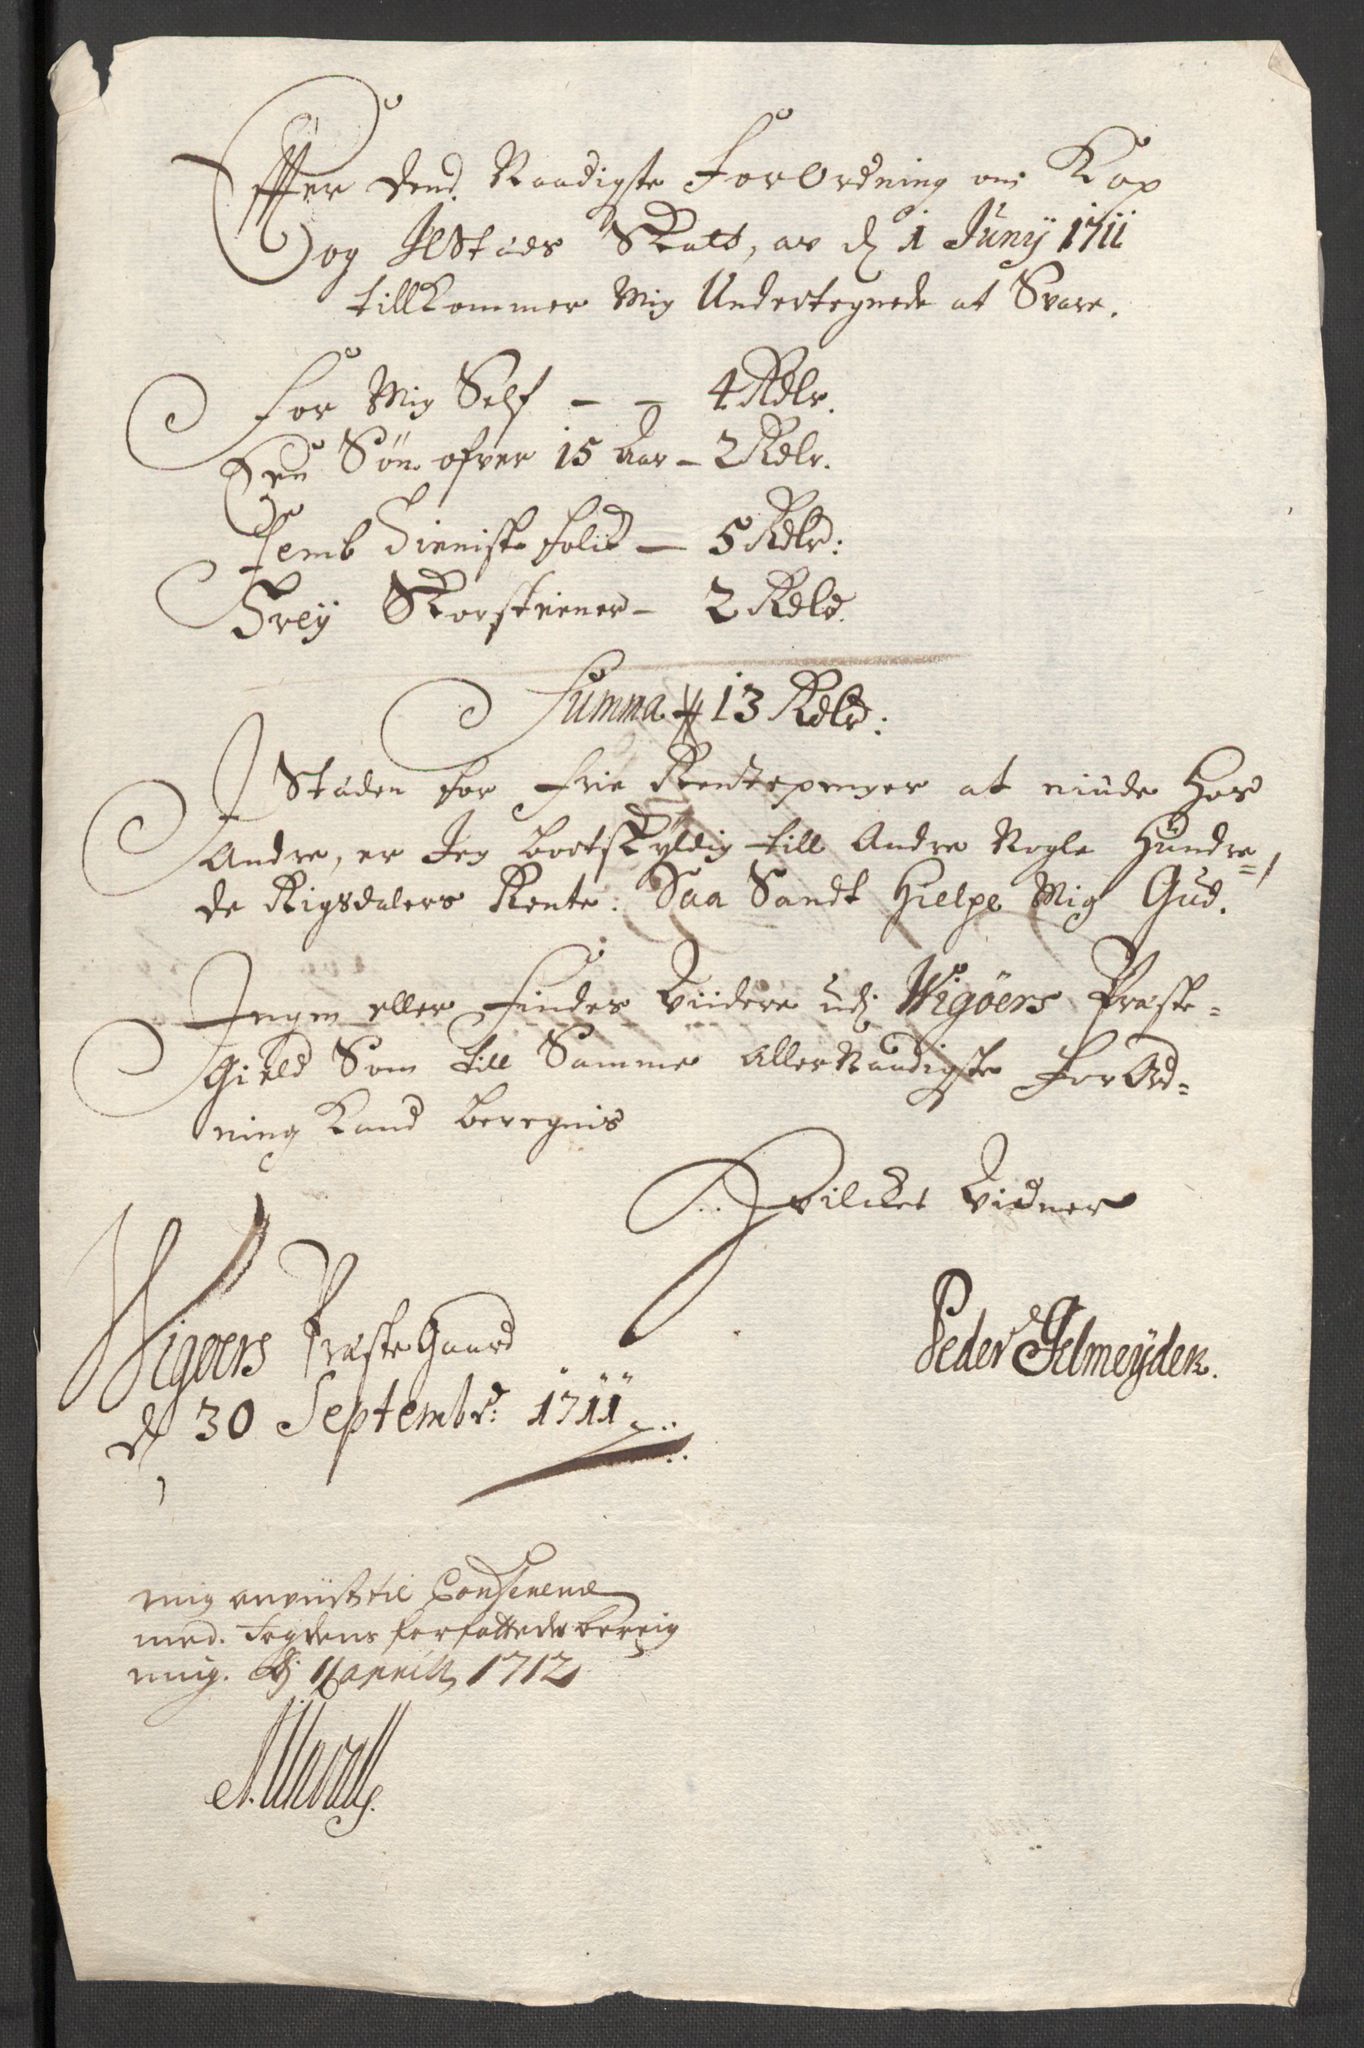 Effter Dend Naadigste ForOrdning om Kop
og IlStæds Skatt, av d: 1 Junÿ 1711
tillkommer Mig Undertegnede at Svare.
For Mig Self — — 4 Rdlr.
Een Søn ofver 15 Aar — 2 Rdlr.
Femb Tienniste folck — 5 Rdlr:
Trey Skorsteener — 2 Rdlr.
Summa # 13 Rdlr:
I Stæden for frie Rentepenger at niude Hos
Andre, er Jeg bortskyldig till Andre Nogle Hundre=
de Rigsdalers Rente. Saa Sandt Hielpe Mig Gud.
Ingen eller findes Viidere udj Wigøers Præste=
Gield Som till Samme AllerNaadigste ForOrd=
ning Kand beregnis
Hvilcket Vidner
Wigøers PræsteGaard
d 30 Septembr: 1711
Peder Jelmeÿder.
mig anviist til
med. Fogdens forfattede bereig
ning. d: 11 aprill 1712